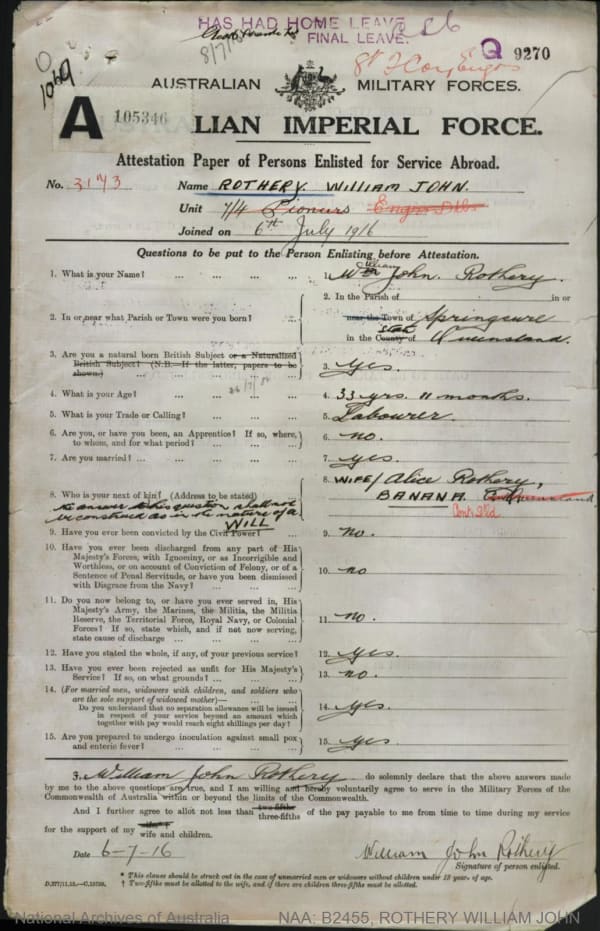 HAS HAD HOME LEAVE
FINAL LEAVE.
8/7/16
Q 9270
1069
AUSTRALIAN MILITARY FORCES.
A 105346
LIAN IMPERIAL FORCE.
Attestation Paper of Persons Enlisted for Service Abroad.
No. 3173 Name ROTHERY. WILLIAM JOHN.
Unit 7/4 Pioneers
Joined on 6th July 1916
Questions to be put to the Person Enlisting before Attestation.
1. What is your Name? ... ... ... ... 1. Wm John. Rothery.
William
2. In or near what Parish or Town were you born? ... 2. In the Parish of in or
near the Town of Springsure
in the County of Queensland.
State
3. Are you a natural born British Subject or a Naturalized
British Subject? (N.B.—If the latter, papers to be
shown.) ... ... ... ... 3. Yes.
4. What is your Age? ... ... ... ... 4. 33 yrs. 11 months.
5. What is your Trade or Calling? ... ... ... 5. Labourer.
6. Are you, or have you been, an Apprentice? If so, where,
to whom, and for what period? ... ... ... 6. no.
7. Are you married? ... ... ... ... 7. yes.
8. Who is your next of kin? (Address to be stated) 8. WIFE/ Alice Rothery,
BANANA
the answer to this question shall not
be construed as in the nature of a
WILL
9. Have you ever been convicted by the Civil Power? ... 9. no.
10. Have you ever been discharged from any part of His
Majesty's Forces, with Ignominy, or as Incorrigible and
Worthless, or on account of Conviction of Felony, or of a
Sentence of Penal Servitude, or have you been dismissed
with Disgrace from the Navy? ... ... ... 10. no
11. Do you now belong to, or have you ever served in, His
Majesty's Army, the Marines, the Militia, the Militia
Reserve, the Territorial Force, Royal Navy, or Colonial
Forces? If so, state which, and if not now serving,
state cause of discharge ... ... ... ... 11. no.
12. Have you stated the whole, if any, of your previous service? 12. yes.
13. Have you ever been rejected as unfit for His Majesty's
Service? If so, on what grounds? ... ... ... 13. no.
14. (For married men, widowers with children, and soldiers who
are the sole support of widowed mother)—
Do you understand that no separation allowance will be issued
in respect of your service beyond an amount which
together with pay would reach eight shillings per day? 14. yes.
15. Are you prepared to undergo inoculation against small pox
and enteric fever? ... ... ... ... 15. yes
I, William John Rothery do solemnly declare that the above answers made
by me to the above questions are true, and I am willing and hereby voluntarily agree to serve in the Military Forces of the
Commonwealth of Australia within or beyond the limits of the Commonwealth.
And I further agree to allot not less than two-fifths three-fifths of the pay payable to me from time to time during my service
for the support of my wife wife and children.
Date 6-7-16 William John Rothery
Signature of person enlisted.
* This clause should be struck out in the case of unmarried men or widowers without children under 18 year. of age.
† Two-fifths must be allotted to the wife, and if there are children three-fifths must be allotted.
D.277/11.15.—C.15739.
National Archives of Australia NAA: B2455, ROTHERY WILLIAM JOHN